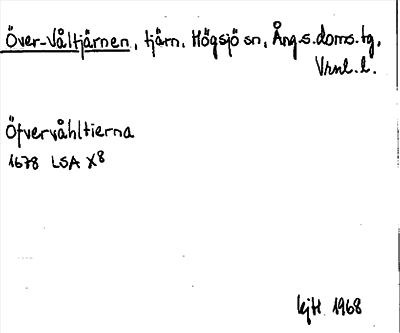 Över-Våltjärnen, tjärn. Högsjö sn, Ång.s.doms.tg,
Vrnl. l.
Öfvervåhltierna
1678 LSA X8
1968